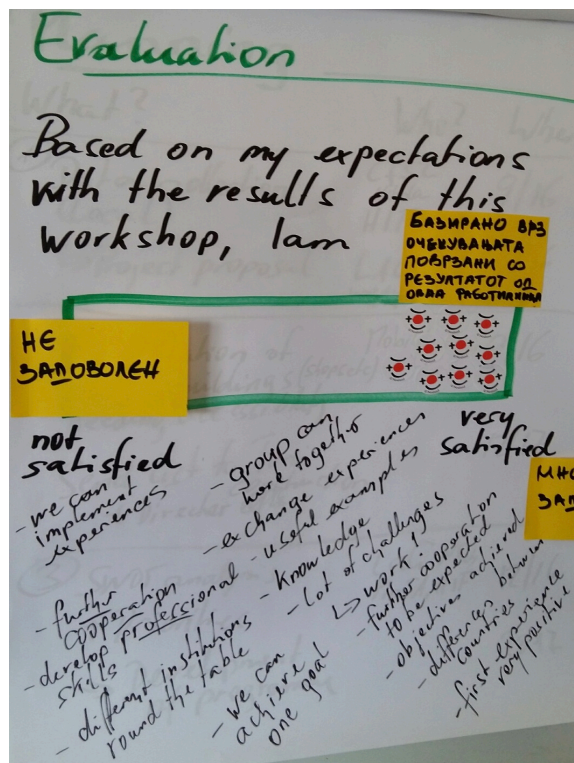 Evaluation
Based on my expectations
with the results of this
workshop, I am
БАЗИРАНО ВРЗ
ОЧЕКУВАЊАТА
ПОВРЗАНИ СО
РЕЗУЛТАТОТ ОД
ОВАА РАБОТИЛНИЦА
НЕ
ЗАДОВОЛЕН
not
satisfied
very
satisfied
МНО
ЗАД
- we can
implement
experiences
- further
cooperation
- develop professional
skills
- different institutions
round the table
- group can
work together
- exchange experiences
- useful examples
- knowledge
- lot of challenges
↳ work!
- further cooporation
to be expected
- objectives achieved
- differences between
countries
- first experience
very positive
- we can
achieve
one goal